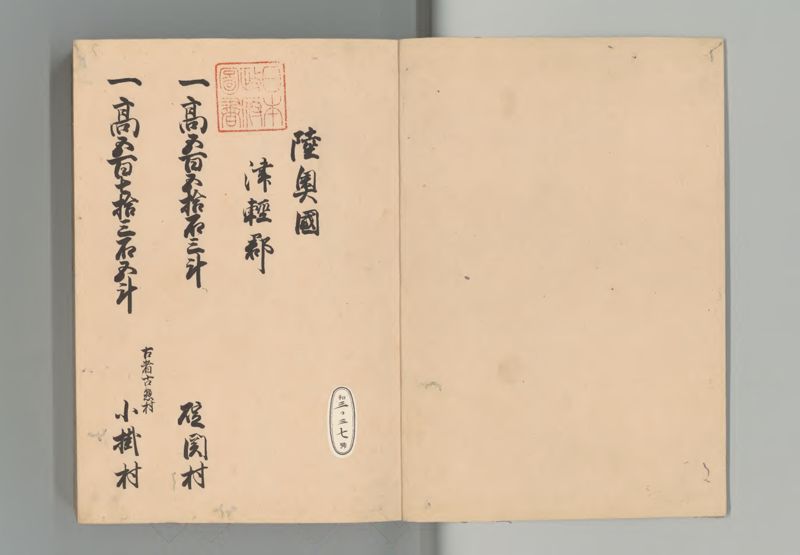 陸奥國
津輕郡
一高五百五拾石三斗
碇関村
一高五百七拾三石五斗
古者古懸村
小掛村
日本
政府
圖書
和
三
三七
號